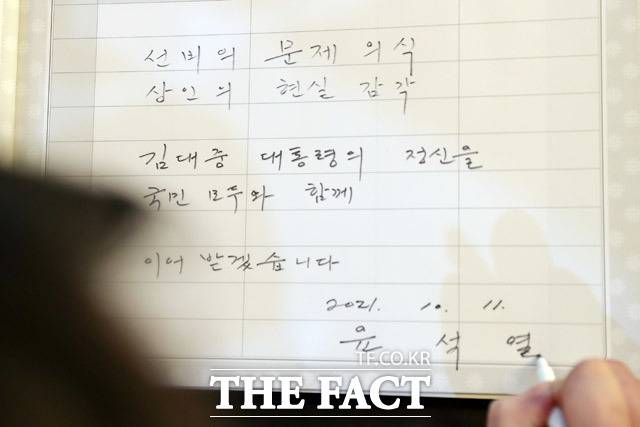 선비의 문제의식
상인의 현실감각
김대중 대통령의 정신을
국민 모두와 함께
이어 받겠습니다
2021. 10. 11.
윤 석 열
TF.CO.KR
THE FACT